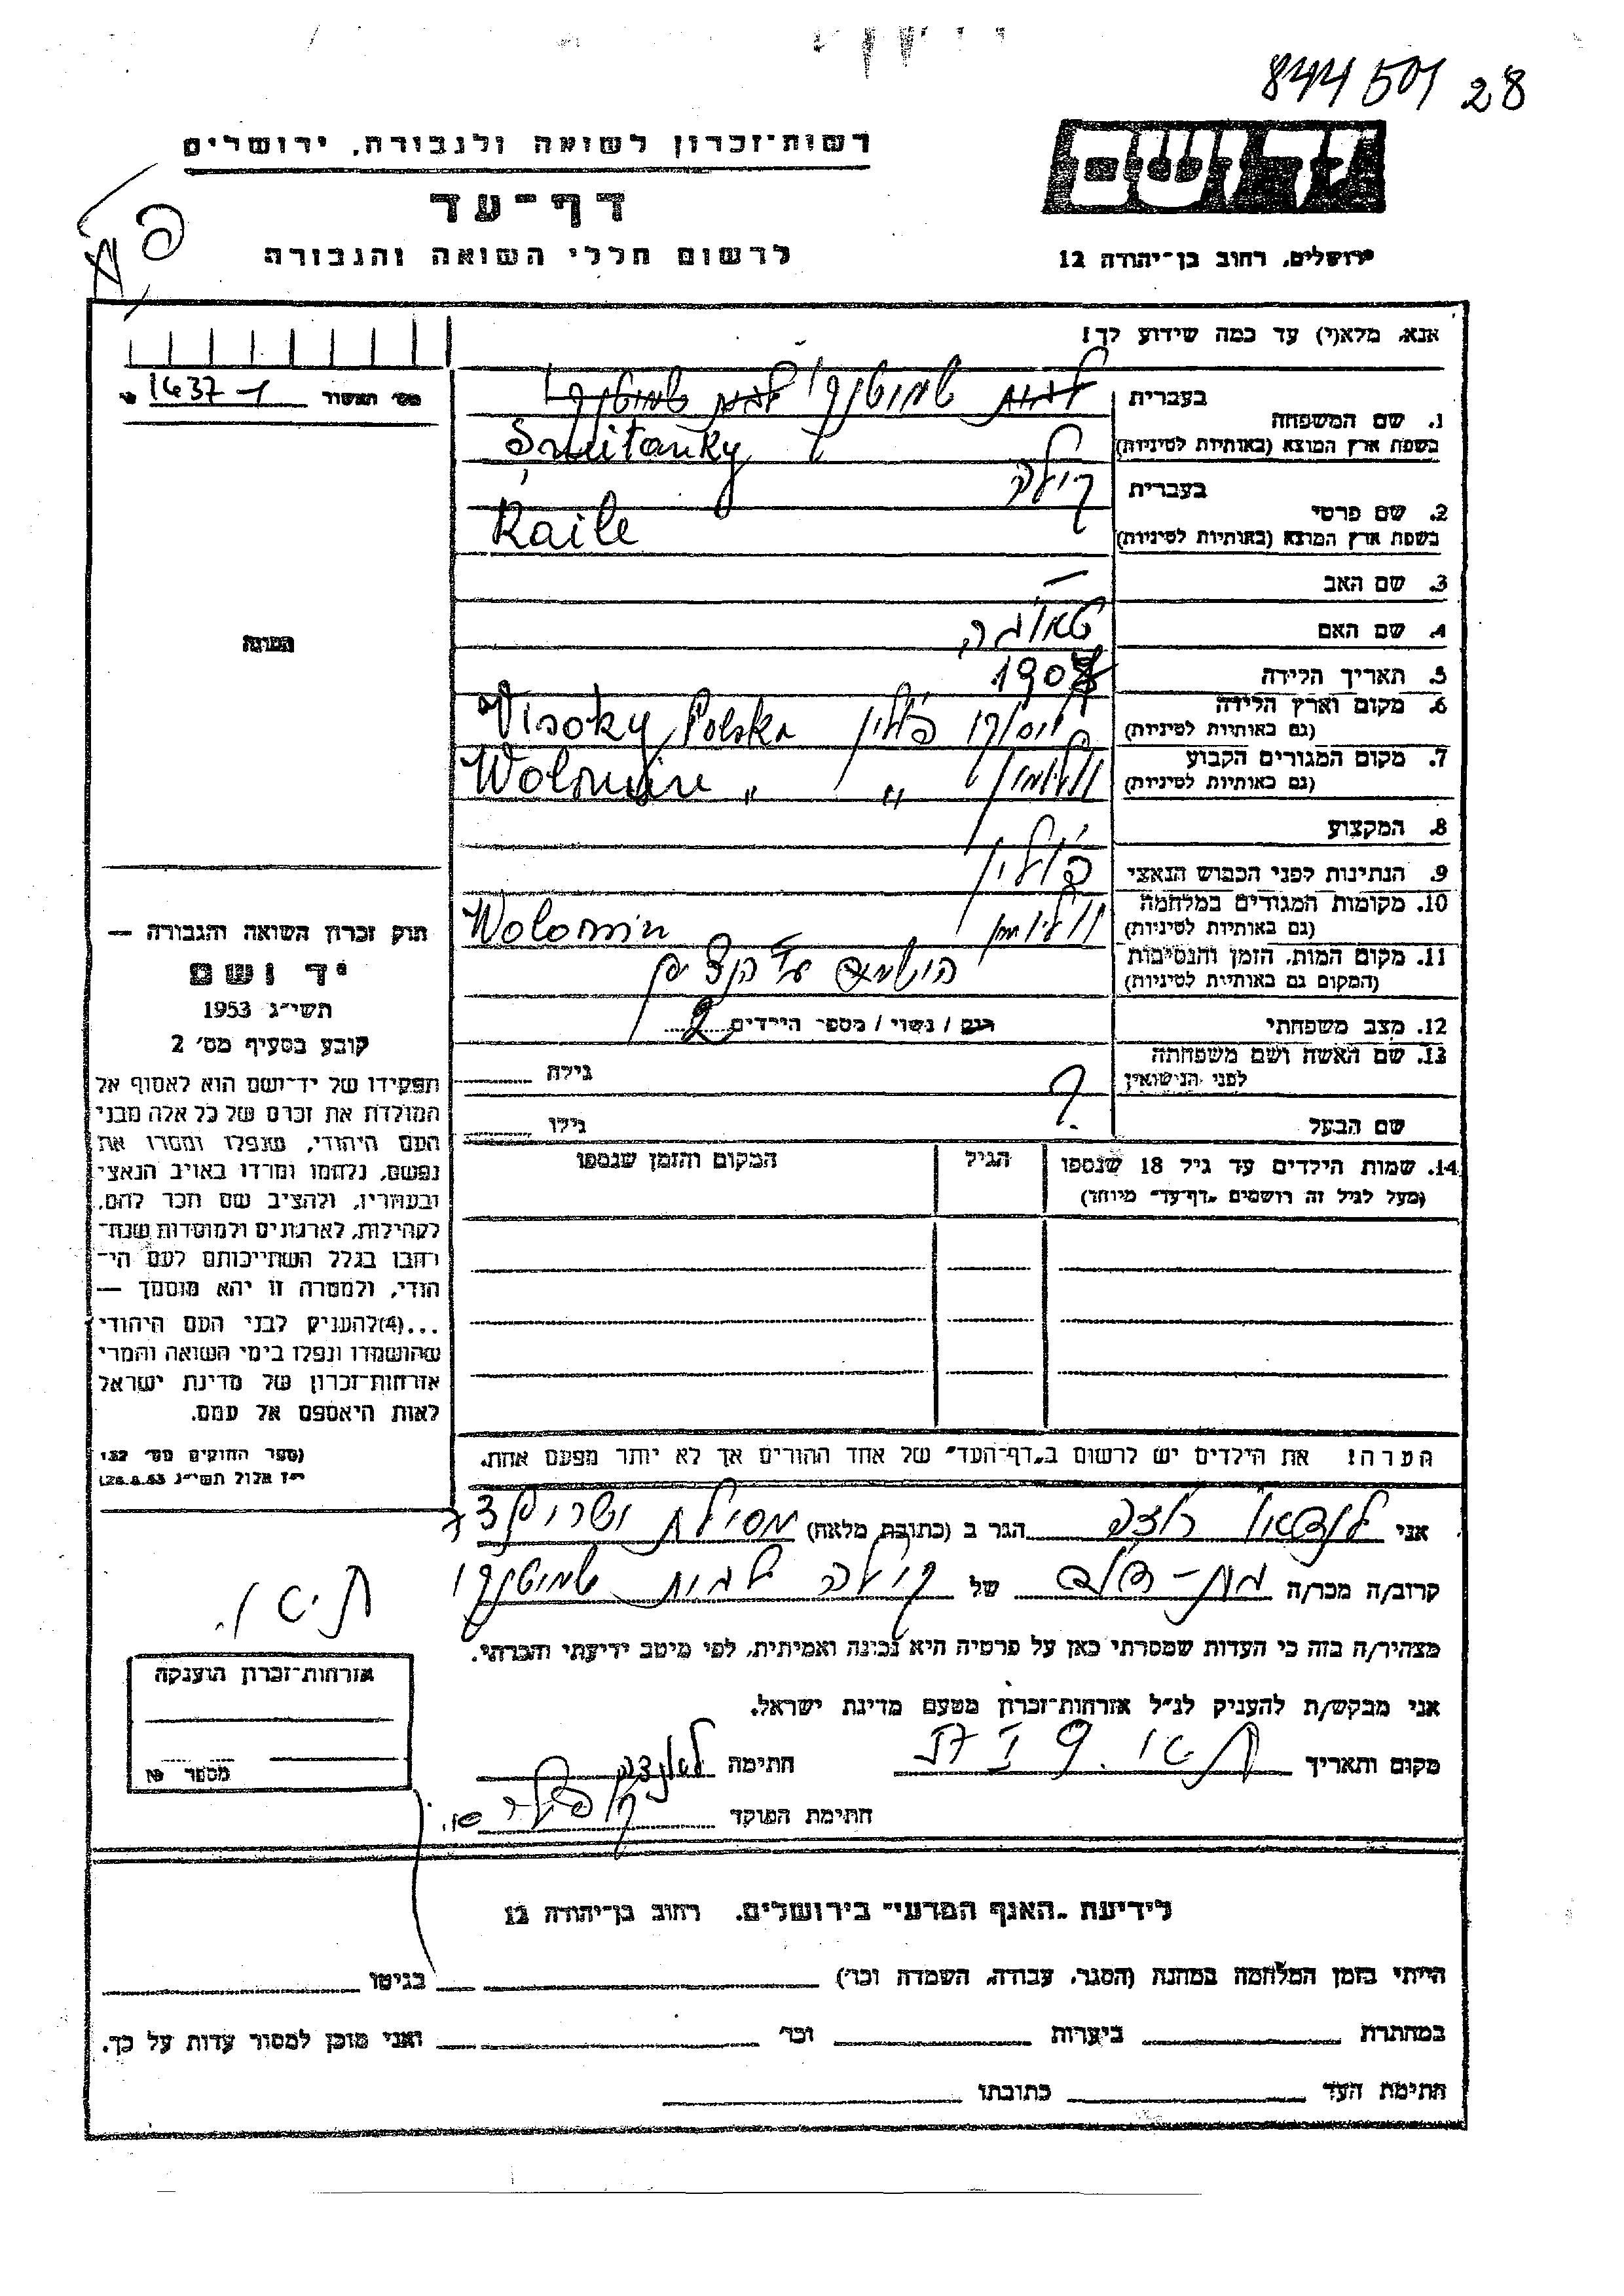 844 501 28
רשות־זכרון לשואה ולגבורה, ירושלים
יד ושם
דף־עד
לרשום חללי השואה והגבורה
ירושלים, רחוב בן־יהודה 12
אנא, מלא(י) עד כמה שידוע לך!
מס׳ האשור 1437
1. שם המשפחה
בעברית שמיטנקי
בשפת ארץ המוצא (באותיות לטיניות) Šmitanky
2. שם פרטי
בעברית קילה
בשפת ארץ המוצא (באותיות לטיניות) Kaile
3. שם האב —
4. שם האם
5. תאריך הלידה 190
6. מקום וארץ הלידה
(גם באותיות לטיניות) פולין Visoky Polska
7. מקום המגורים הקבוע
(גם באותיות לטיניות) וולומין " Wolomin "
8. המקצוע
9. הנתינות לפני הכבוש הנאצי פולין
10. מקומות המגורים במלחמה
(גם באותיות לטיניות) וולומין Wolomin
11. מקום המות, הזמן והנסיבות
(המקום גם באותיות לטיניות)
12. מצב משפחתי רווק / נשוי / מספר הילדים 2
13. שם האשה ושם משפחתה
לפני הנישואין ? גילה
שם הבעל גילו
14. שמות הילדים עד גיל 18 שנספו
(מעל לגיל זה רושמים „דף־עד״ מיוחד)
הגיל
המקום והזמן שנספו
הערה! את הילדים יש לרשום ב„דף־העד״ של אחד ההורים אך לא יותר מפעם אחת.
התמונה
חוק זכרון השואה והגבורה —
יד ושם
תשי״ג 1953
קובע בסעיף מס׳ 2
תפקידו של יד־ושם הוא לאסוף אל
המולדת את זכרם של כל אלה מבני
העם היהודי, שנפלו ומסרו את
נפשם, נלחמו ומרדו באויב הנאצי
ובעוזריו, ולהציב שם וזכר להם,
לקהילות, לארגונים ולמוסדות שנח־
רבו בגלל השתייכותם לעם הי־
הודי, ולמטרה זו יהא מוסמך —
...(4)להעניק לבני העם היהודי
שהושמדו ונפלו בימי השואה והמרי
אזרחות־זכרון של מדינת ישראל
לאות היאספם אל עמם.
(ספר החוקים מס׳ 132
י״ז אלול תשי״ג 28.8.53)
אני לנדאו הגר ב (כתובת מלאה)
קרוב/ה מכר/ה בת-דוד של קילה לבית שמיטנקי
מצהיר/ה בזה כי העדות שמסרתי כאן על פרטיה היא נכונה ואמיתית, לפי מיטב ידיעתי והכרתי.
אני מבקש/ת להעניק לנ״ל אזרחות־זכרון מטעם מדינת ישראל.
מקום ותאריך חתימה
חתימת הפוקד
אזרחות־זכרון הוענקה
מספר
לידיעת „האגף המדעי״ בירושלים, רחוב בן־יהודה 12
הייתי בזמן המלחמה במחנה (הסגר, עבודה, השמדה וכו׳) בגיטו
במחתרת ביערות וכו׳ ואני מוכן למסור עדות על כך.
חתימת העד כתובתו